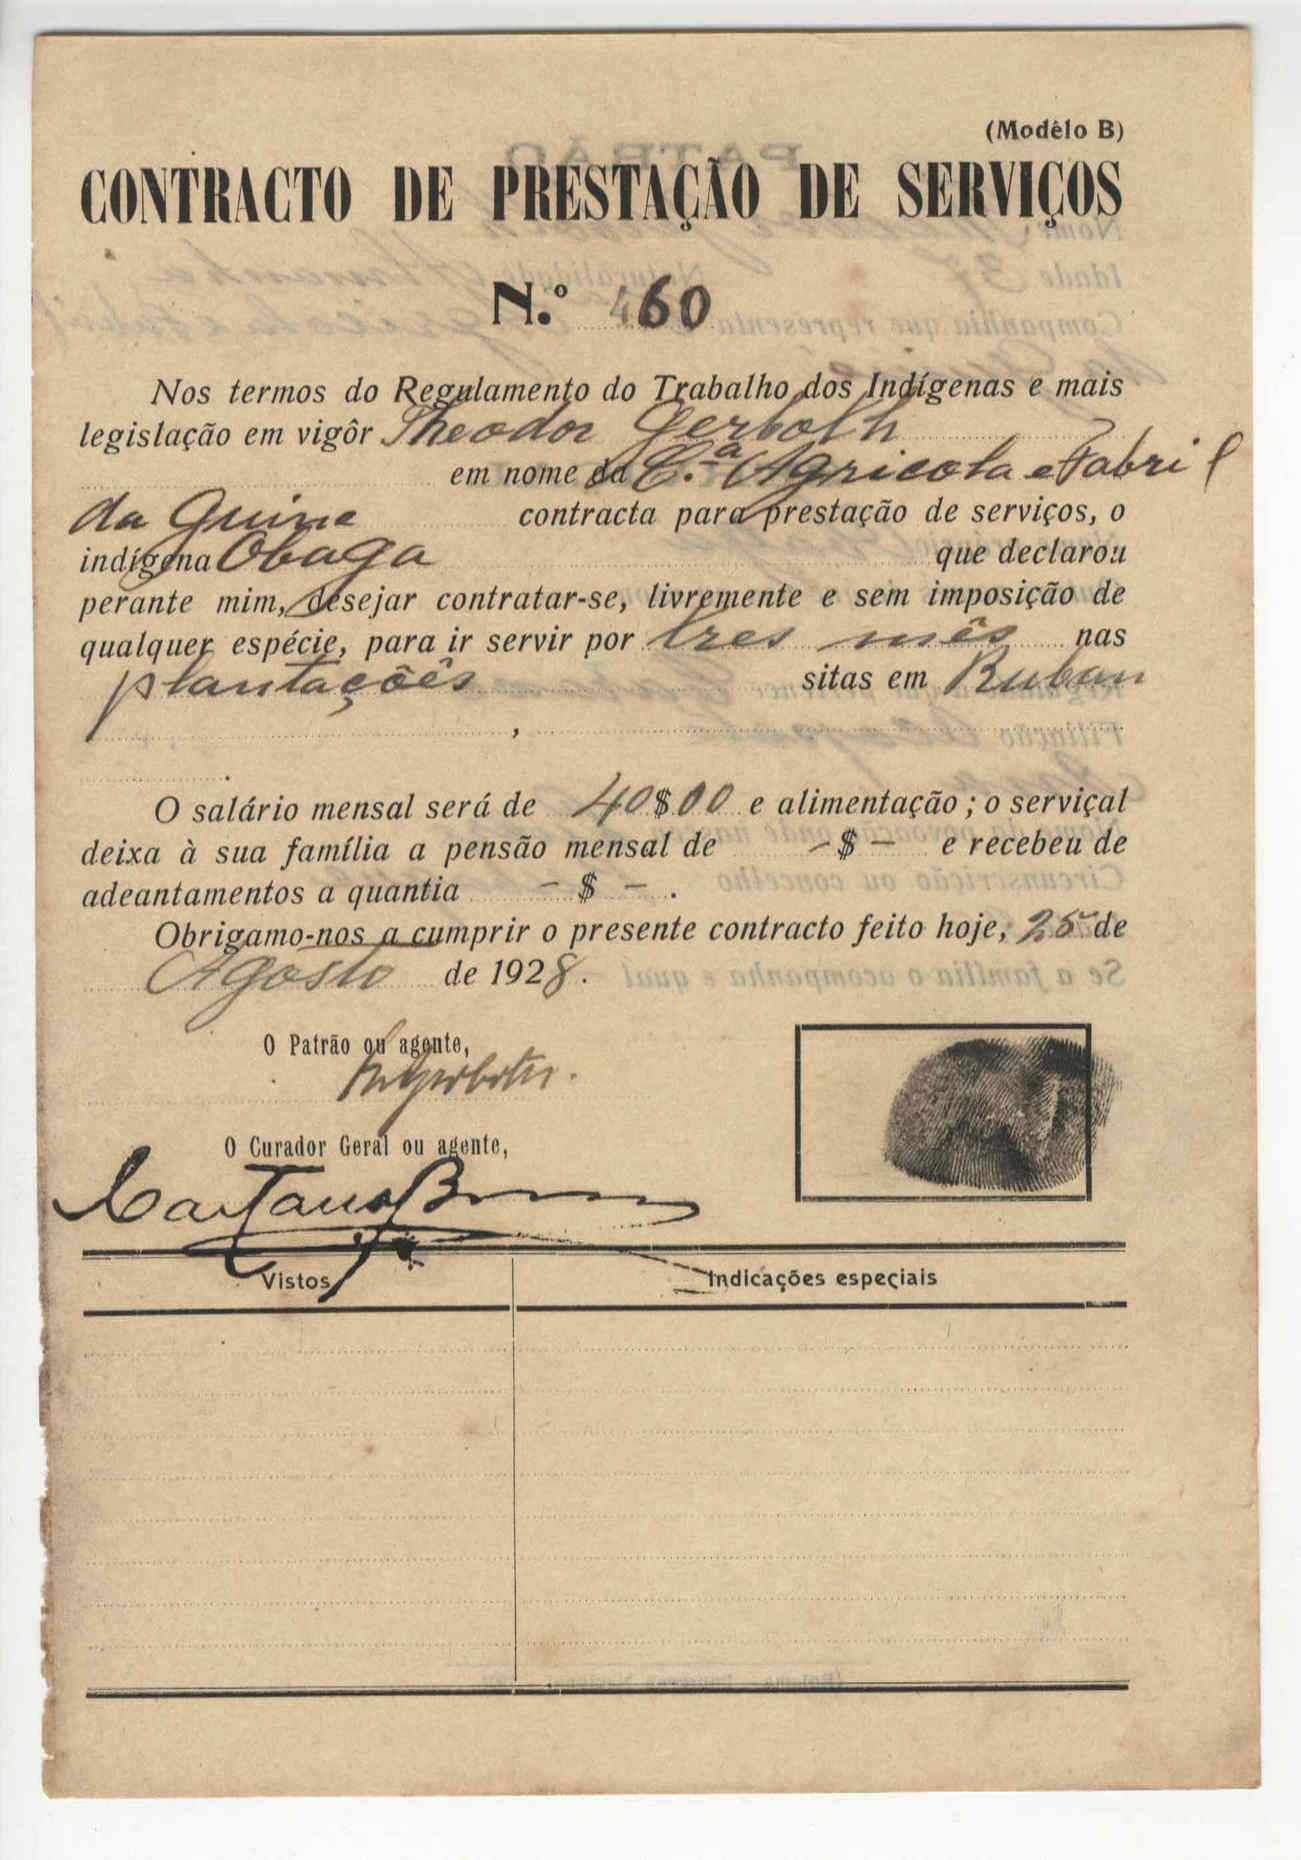 (Modêlo B)
CONTRACTO DE PRESTAÇÃO DE SERVIÇOS
N.º 460
Nos termos do Regulamento do Trabalho dos Indígenas e mais
legislação em vigôr Theodor Gerboth
em nome da C.ª Agricola e Fabril
da Guine contracta para prestação de serviços, o
indígena Obaga que declarou
perante mim, desejar contratar-se, livremente e sem imposição de
qualquer espécie, para ir servir por tres mês nas
plantaçõês sitas em Ruban
,
.
O salário mensal será de 40$00 e alimentação; o serviçal
deixa à sua família a pensão mensal de -$- e recebeu de
adeantamentos a quantia -$-.
Obrigamo-nos a cumprir o presente contracto feito hoje, 25 de
Agosto de 1928.
O Patrão ou agente,
Th Gerboth.
O Curador Geral ou agente,
Caetano
Vistos
Indicações especiais